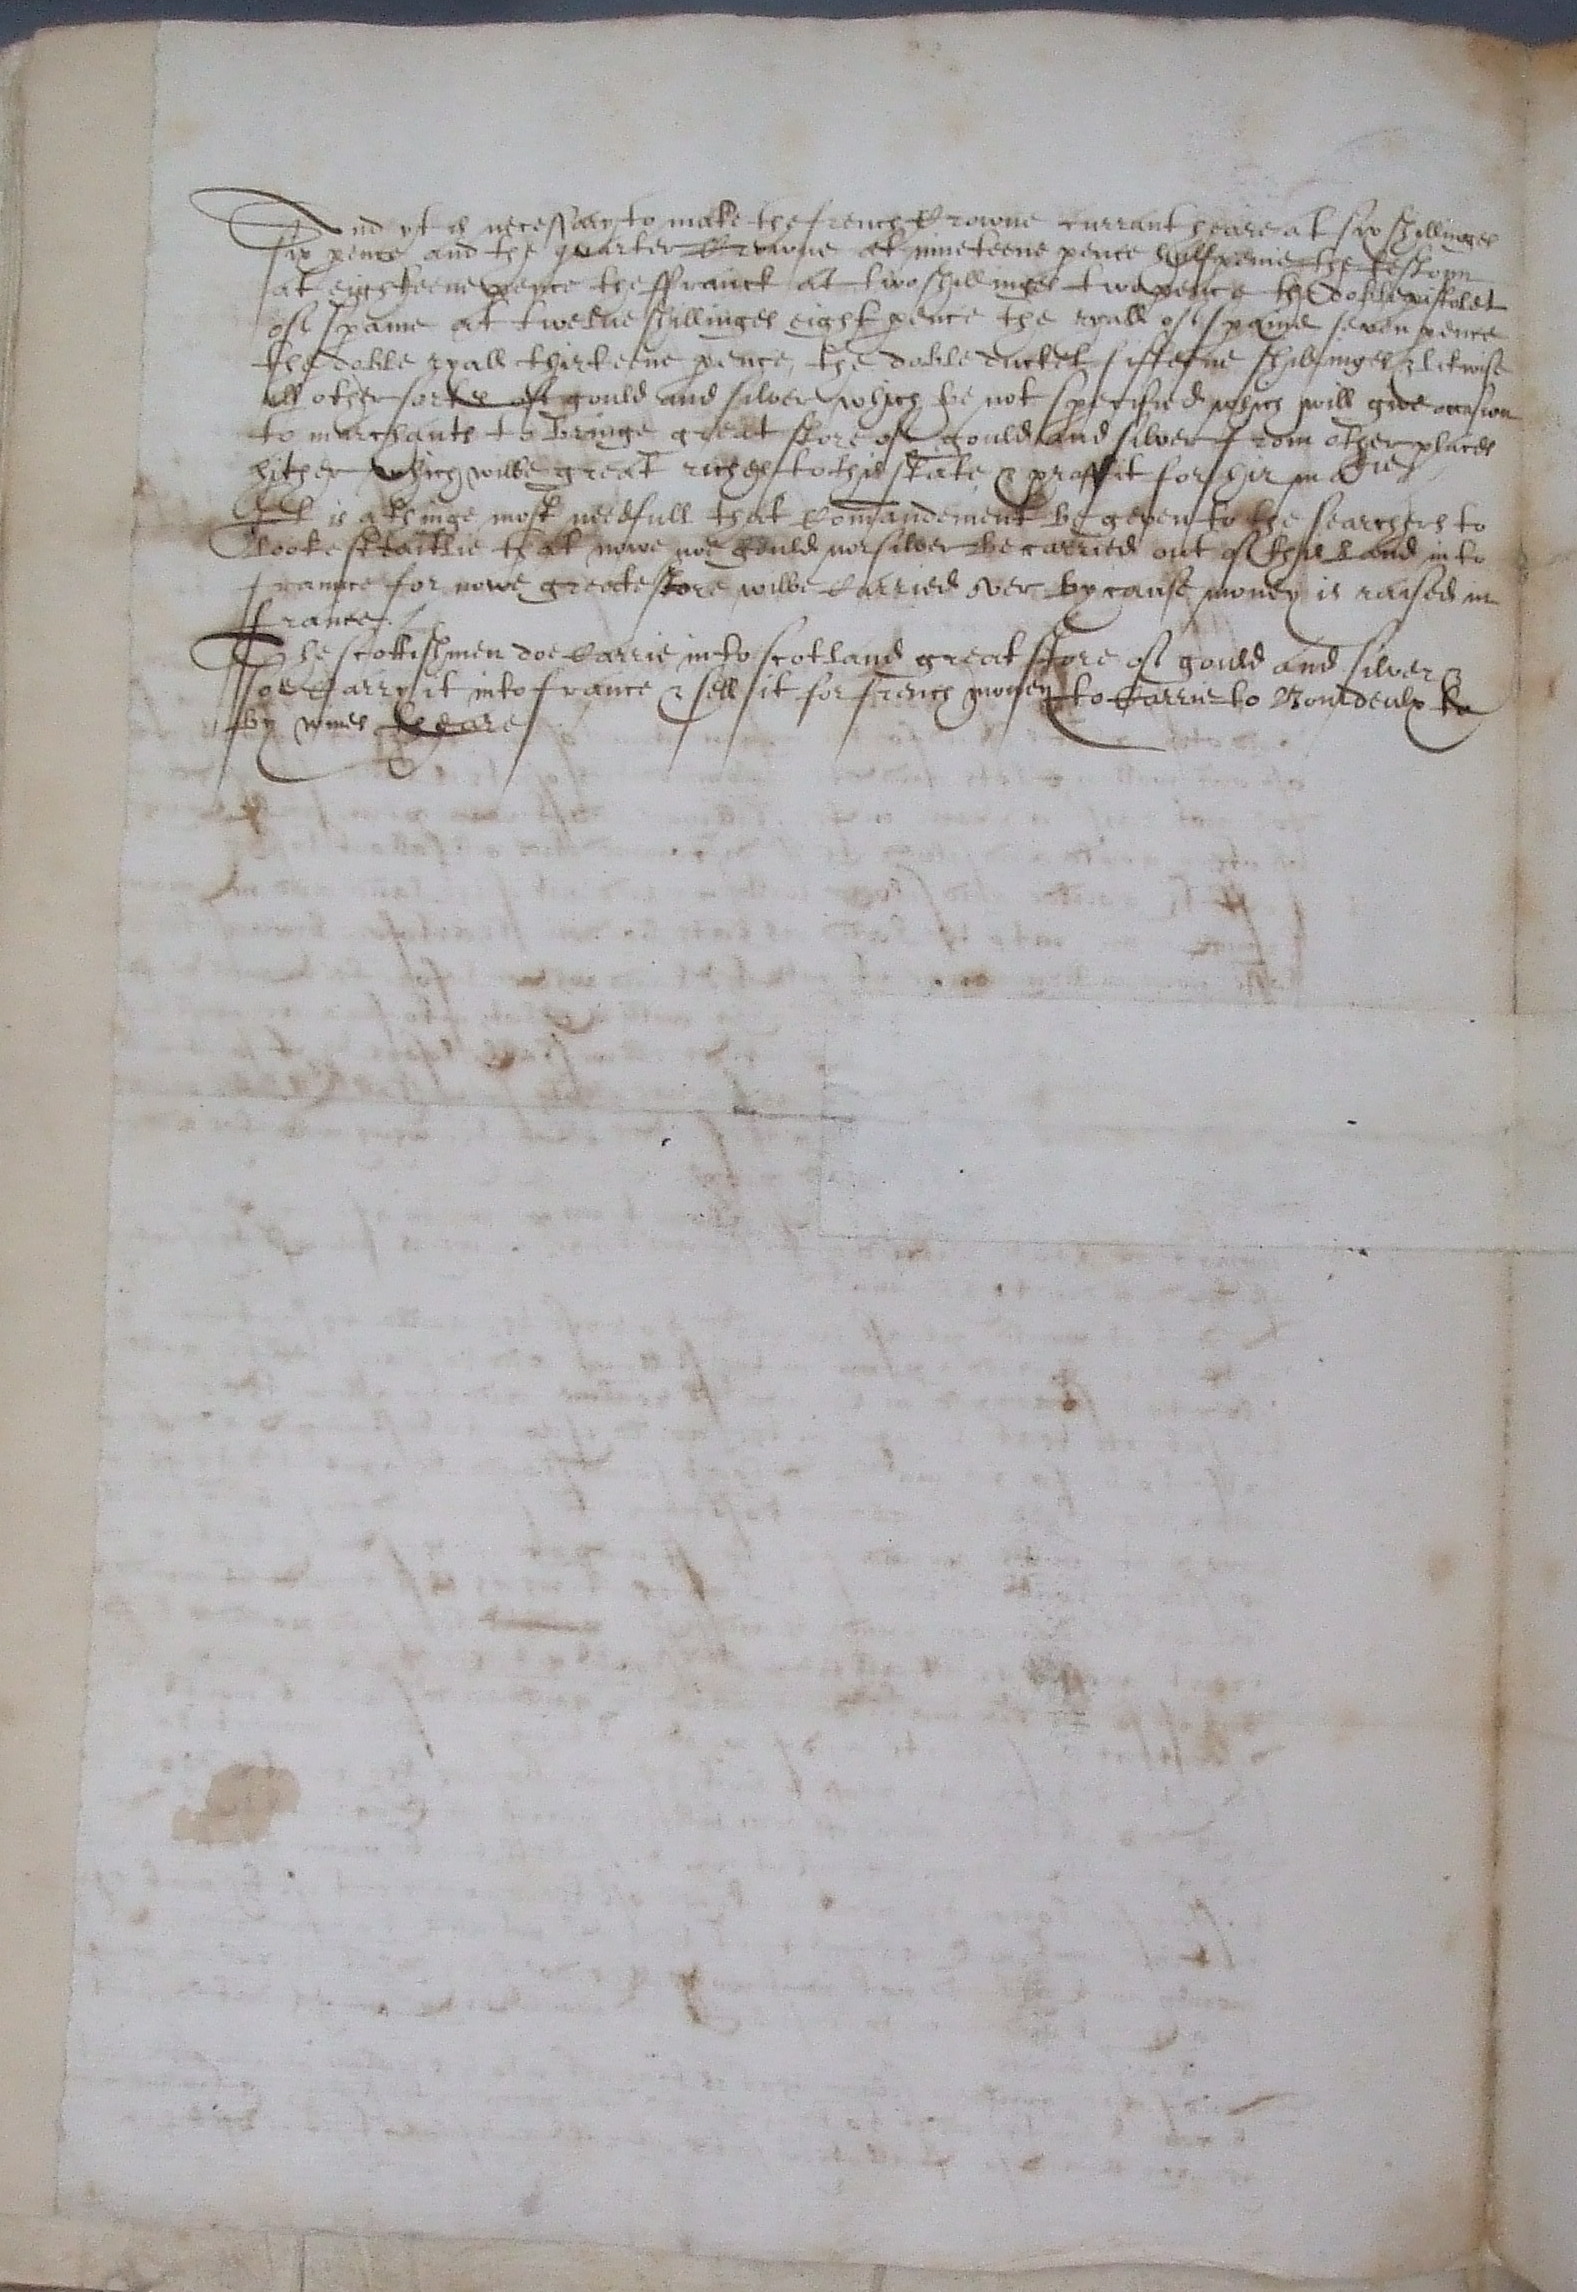 And yt is necessary to make the french Crowne Currant heare at six shillinges
six pence and the quarter Crowne at nineteene pence halfpenie the testorn
at eighteene pence the ffranck at two shillinges two pence the doble pistolet
of spaine at twelue shillinges eight pence the ryall of spaine seven pence
the doble ryall thirteene pence, the doble ducket fifteene shillinges & likwise
all other sortes of gould and silver which be not specified which will give occasion
to marchants to bringe great store of gould and silver from other places
hither which wilbe great riches to this state & proffit for hir ma^tie
It is a thinge most needfull that Comandement be geven to the searchers to
looke straitlie that nowe noe gould nor silver be carried out of this Land into
france for nowe greate store wilbe Carried over by cause money is raised in
france.
The scottishmen doe Carrie into scotland great store of gould and silver &
soe Carry it into france & sell it for french money to Carrie to Bourdeulx to
by wines theare